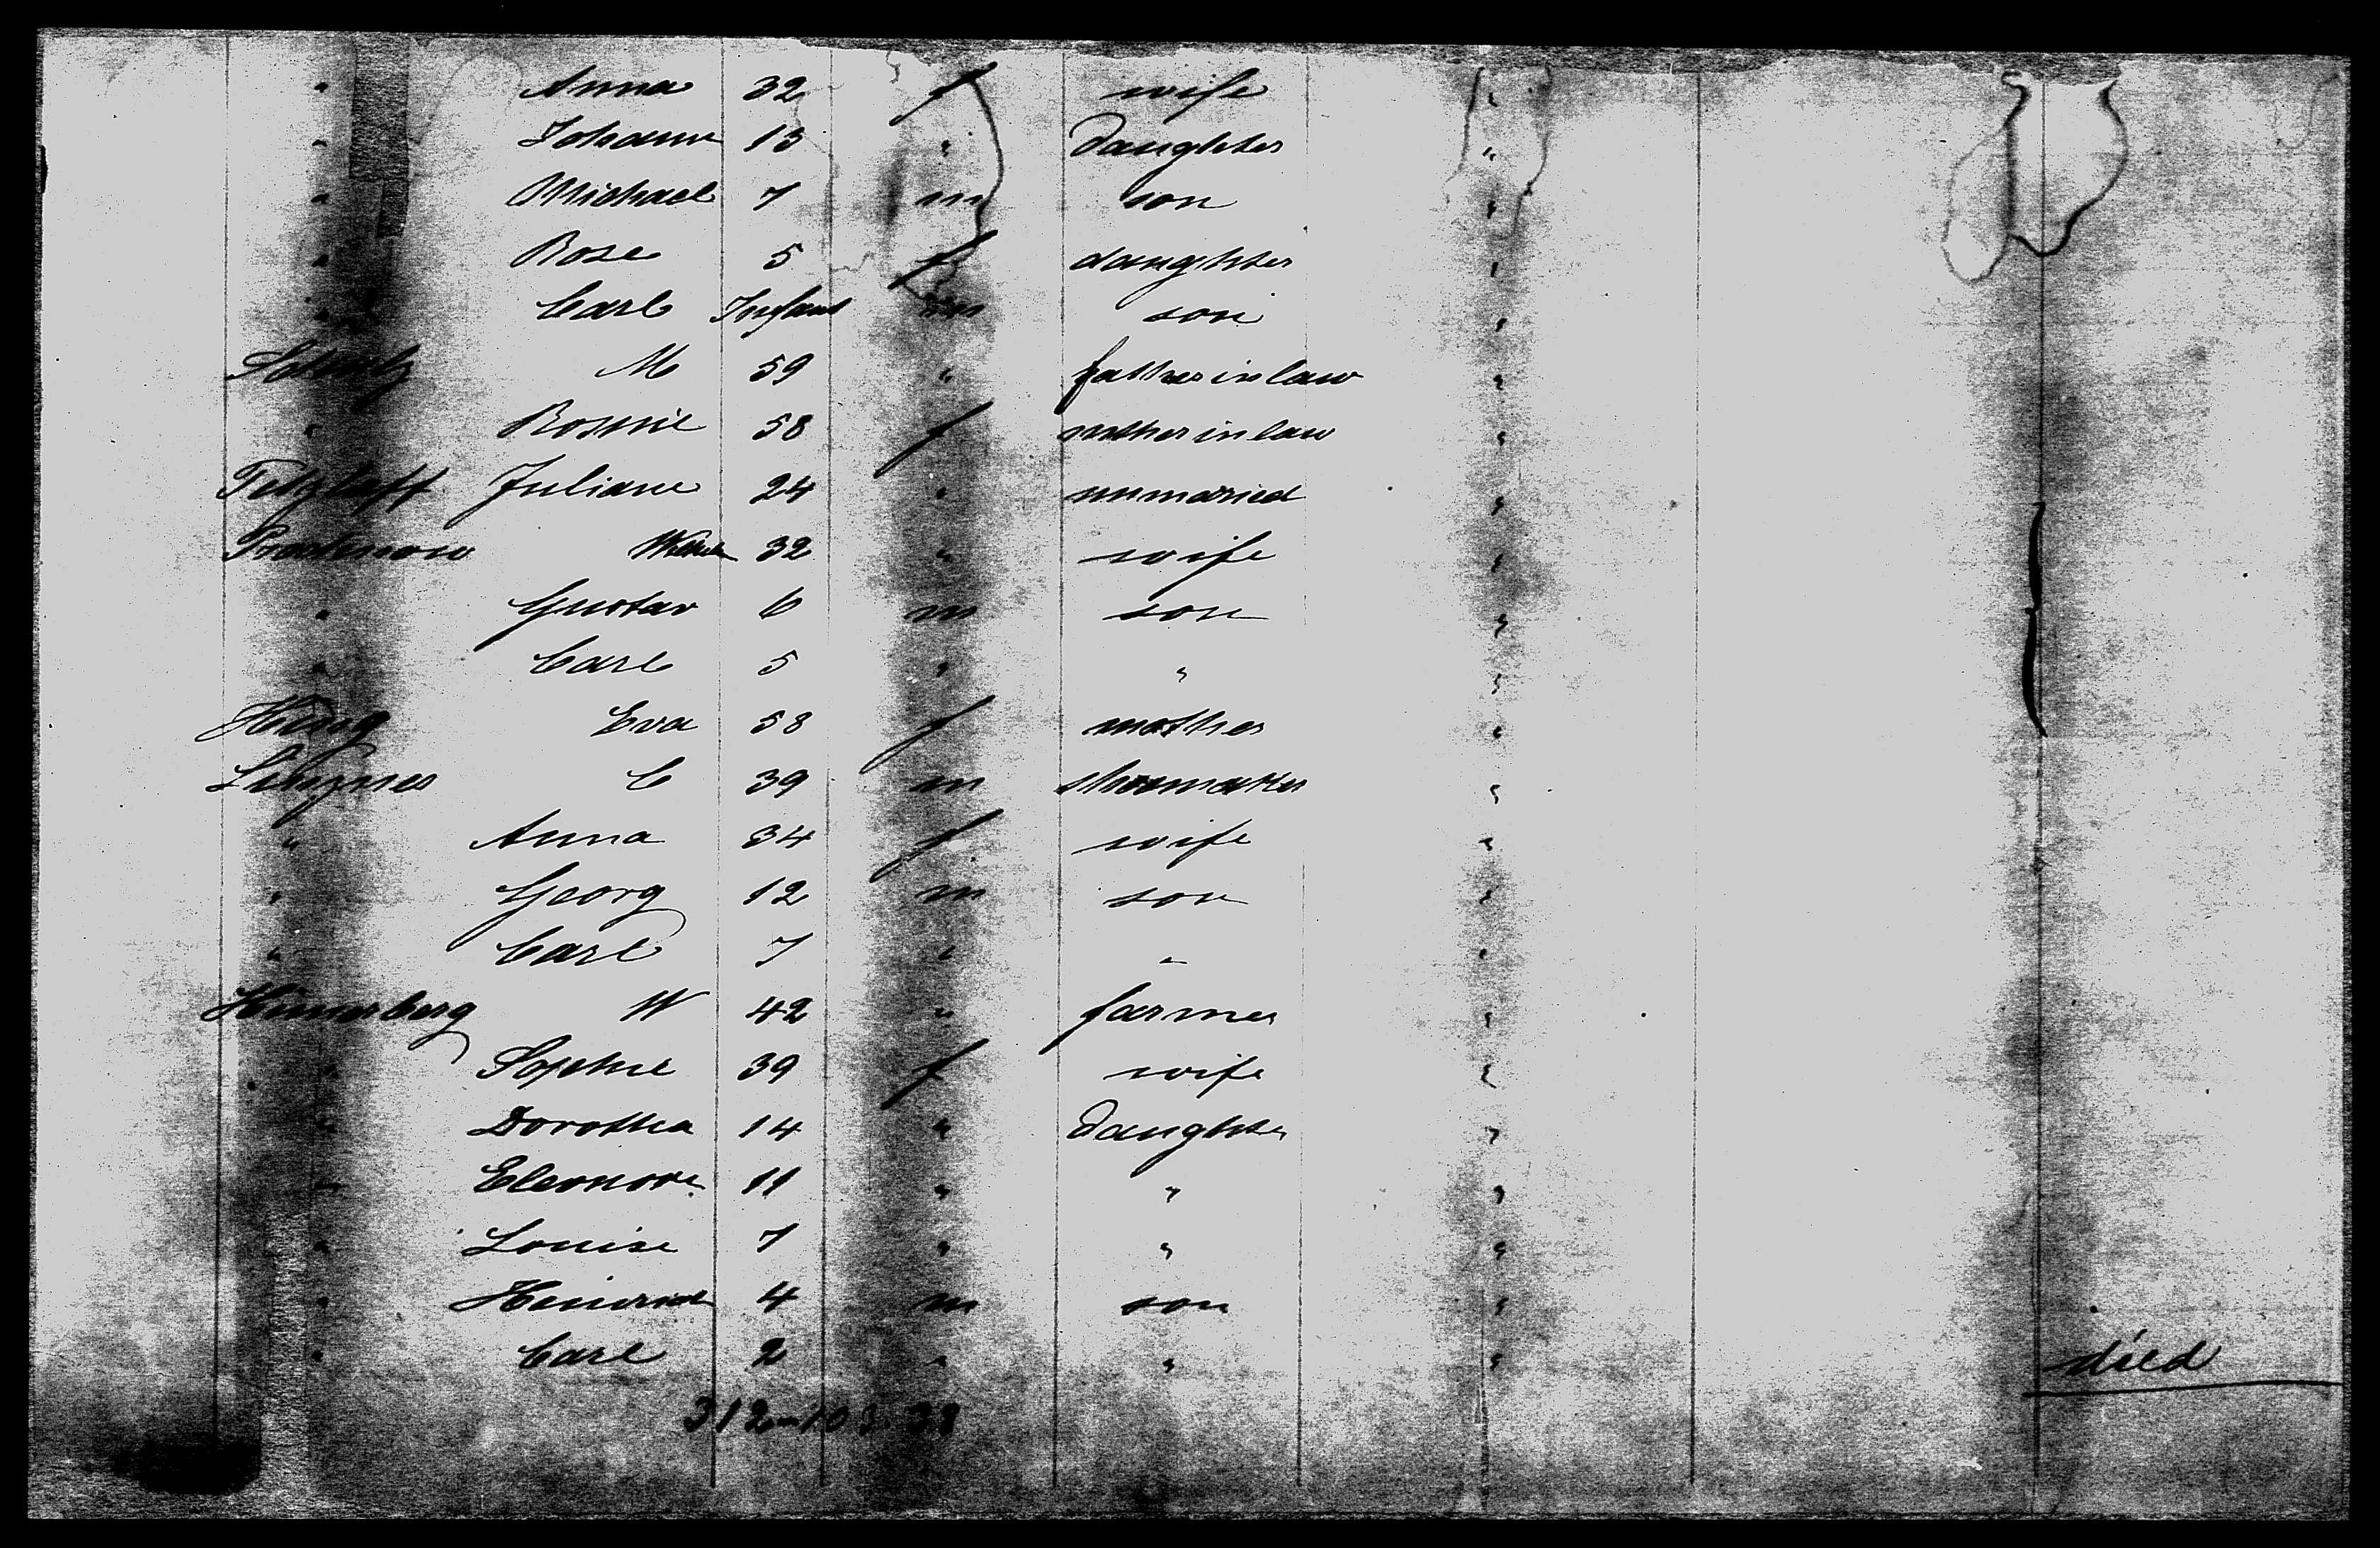 " Anna 32 f wife "
" Johann 13 " Daughter "
" Michael 7 m son "
" Rose 5 f daughter "
" Carl Infant m son "
M 59 " father in law "
" Rosine 58 f mother in law "
Juliane 24 " unmaried "
Prochnow 32 " wife "
" Gustav 6 m son "
" Carl 5 " " "
Eva 58 f mother "
C 39 m shoemaker "
" Anna 34 f wife "
" Georg 12 m son "
" Carl 7 " " "
Hinnerberg W 42 " farmer "
" Sophie 39 f wife "
" Dorothea 14 " Daughter "
" Eleonore 11 " " "
" Louise 7 " " "
" Heinrich 4 m son "
" Carl 2 " " " died
312